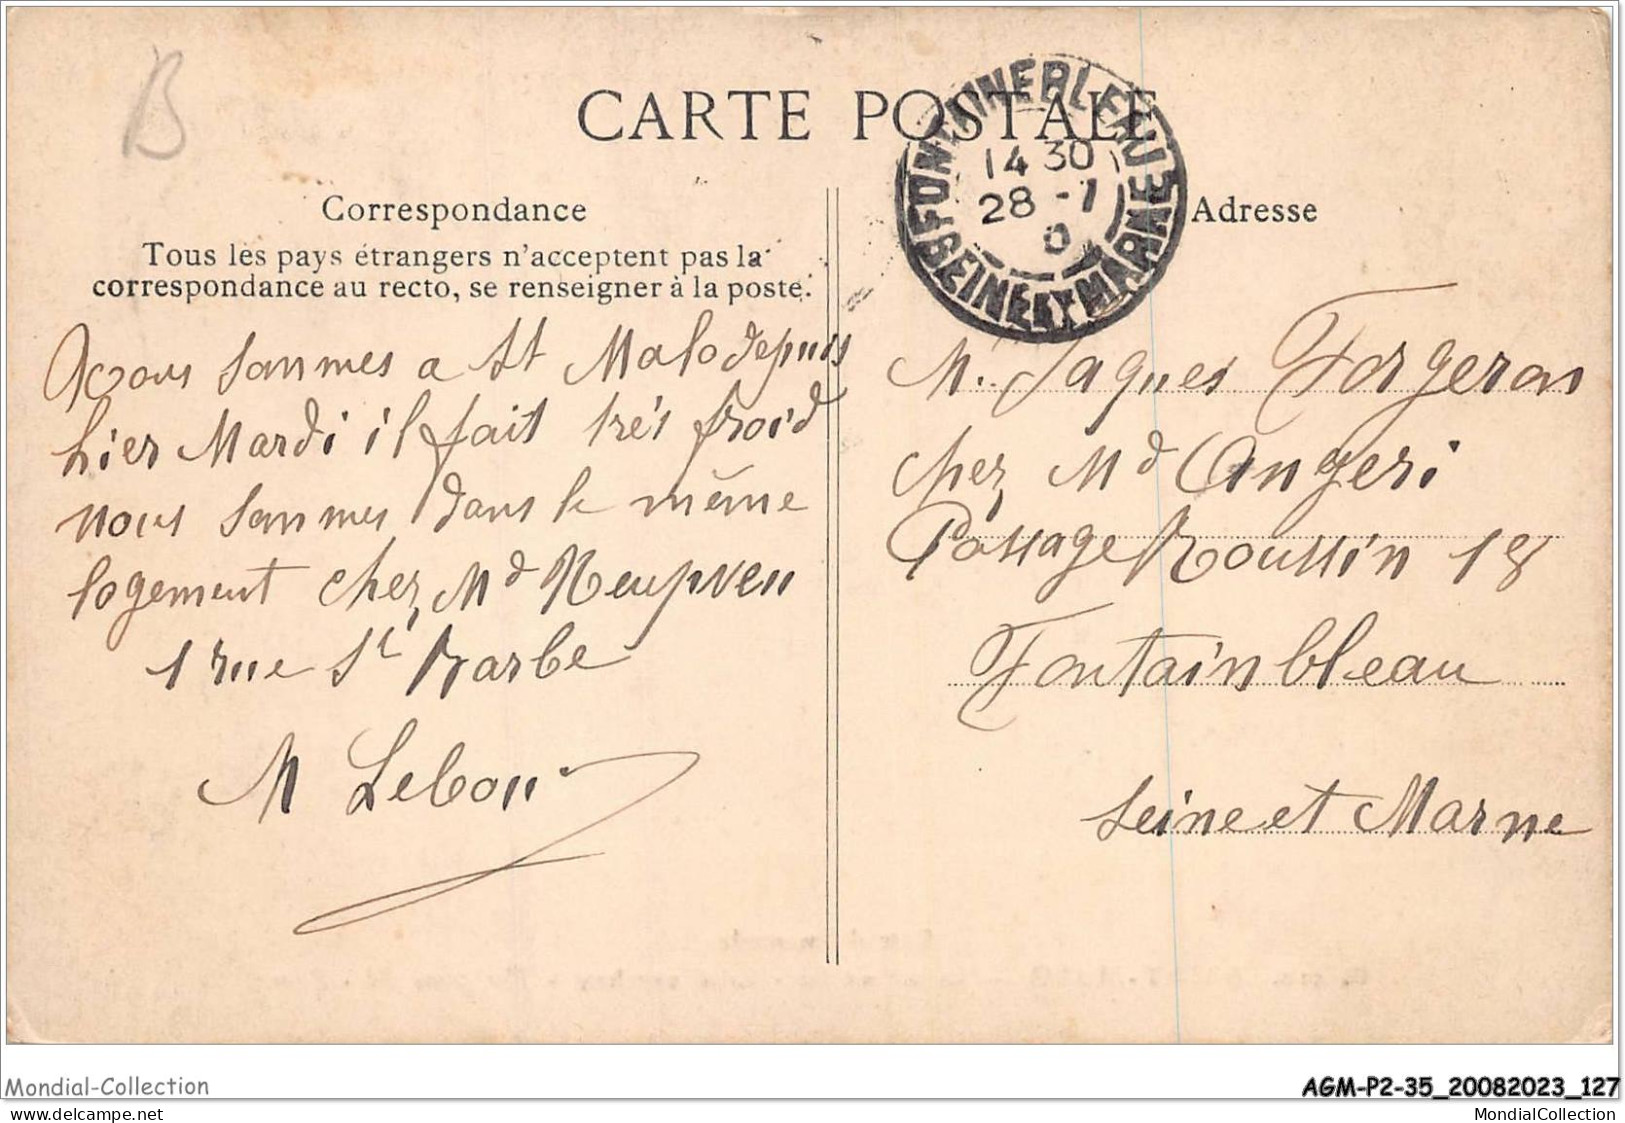 B
CARTE POSTALE
FONTAINEBLEAU
14 30
28 -1
0
SEINE ET MARNE
Correspondance
Adresse
Tous les pays étrangers n'acceptent pas la
correspondance au recto, se renseigner à la poste.
Nous sommes a St Malo depuis
hier Mardi il fait très froid
nous sommes dans le même
logement chez Md Neupveu
1 rue St Barbe
M Lebou
M. Jaques Forgeron
chez Md Angeri
Passage Roussin 18
Fontainbleau
Seine et Marne
Mondial-Collection
AGM-P2-35_20082023_127
delcampe.net
MondialCollection